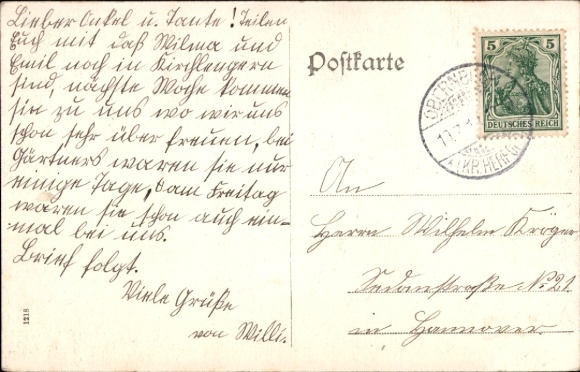 Lieber Onkel u. Tante! Teilen
Euch mit daß Wilma und
Emil noch in Kirchlengern
sind, nächste Woche kommen
sie zu uns wo wir uns
schon sehr über freuen, bei
Gärtners waren sie nur
einige Tage, am Freitag
waren sie schon auch ein-
mal bei uns.
Brief folgt.
Viele Grüße
von Willi.
1218
Postkarte
5 5
DEUTSCHES REICH
(KR. HERFO
An
Herrn Wilhelm Kröger
Sedanstraße No 21
in Hannover.